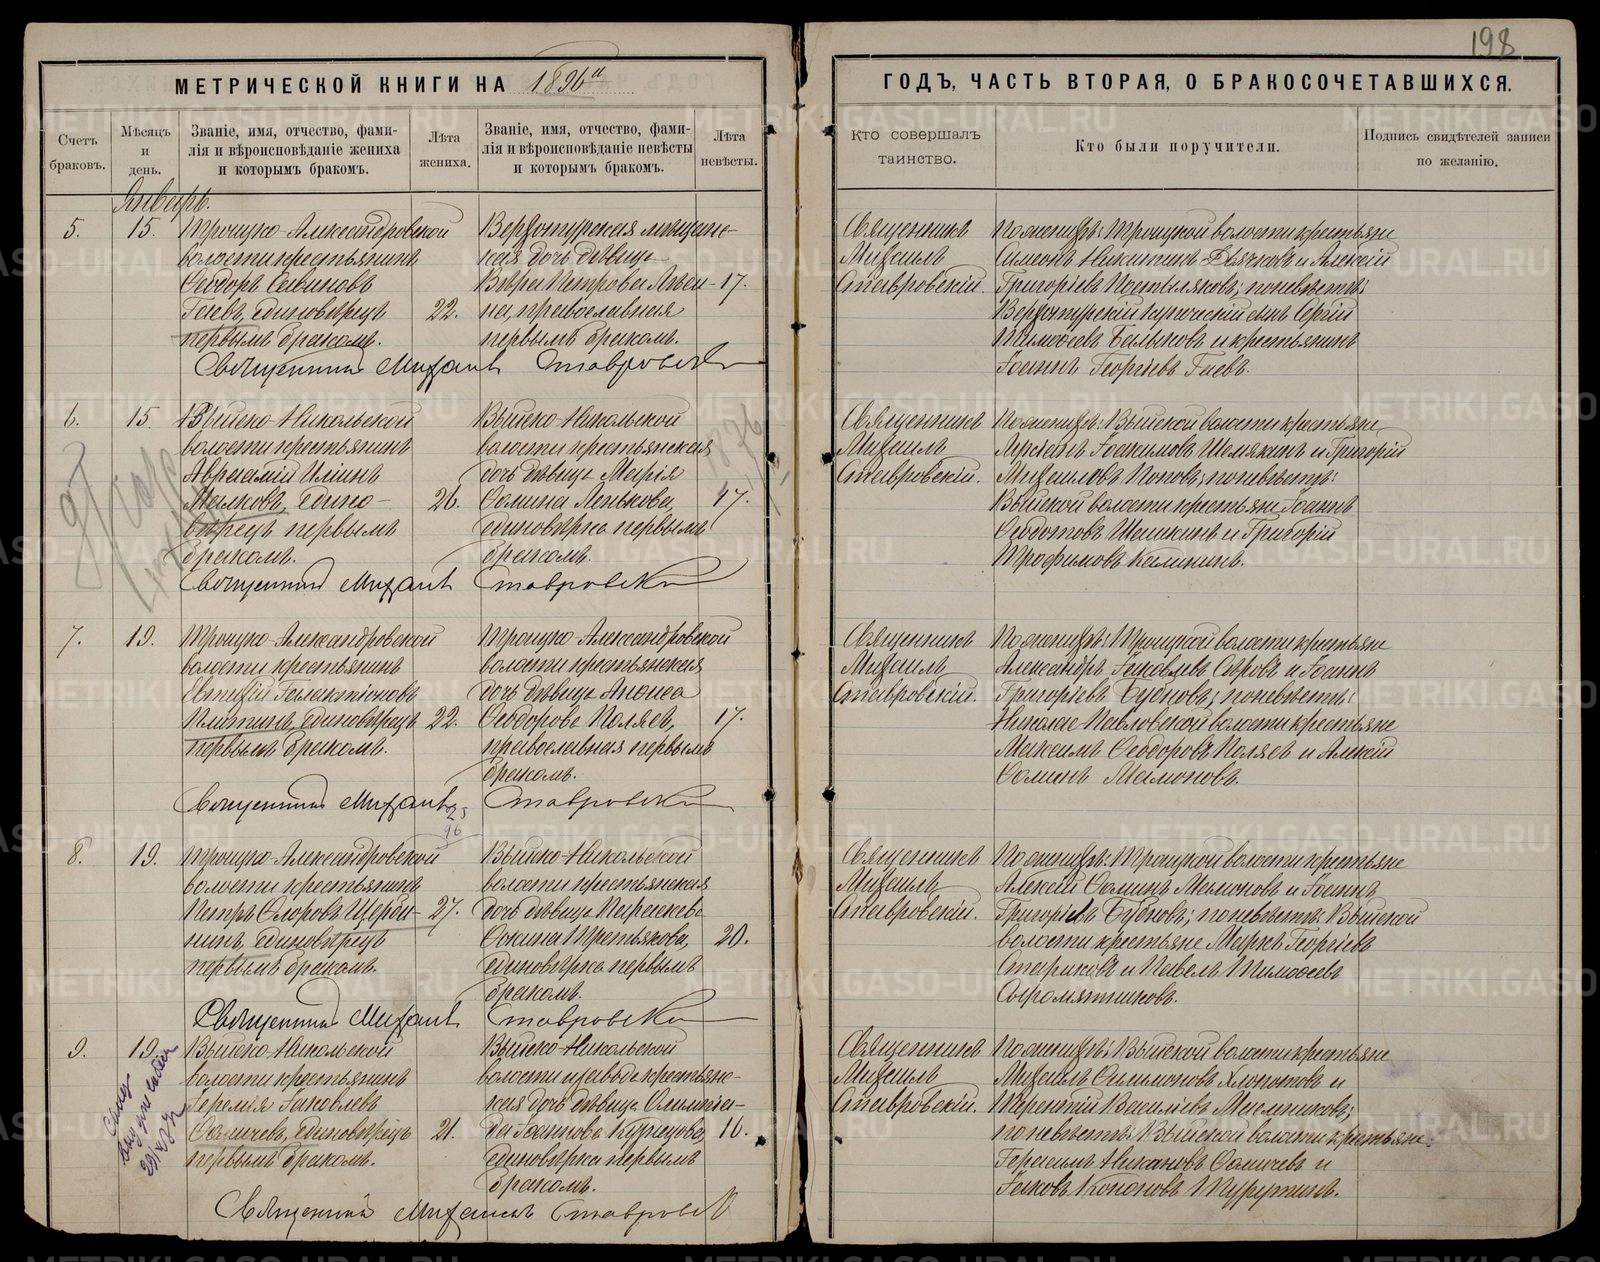 198
МЕТРИЧЕСКОЙ КНИГИ НА 1896й
ГОДЪ, ЧАСТЬ ВТОРАЯ, О БРАКОСОЧЕТАВШИХСЯ.
Счетъ браковъ.
Мѣсяцъ и день.
Званіе, имя, отчество, фами-
лія и вѣроисповѣданіе жениха
и которымъ бракомъ.
Лѣта жениха.
Званіе, имя, отчество, фами-
лія и вѣроисповѣданіе невѣсты
и которымъ бракомъ.
Лѣта невѣсты.
Кто совершалъ
таинство.
Кто были поручители.
Подпись свидѣтелей записи
по желанію.
Январь.
5.
15.
Троицко-Александровской
волости крестьянинъ
Ѳеодоръ Саввиновъ
Гаевъ, единовѣрецъ
первымъ бракомъ.
22.
Верхотурская мѣщанс-
кая дочь дѣвица
Вѣра Петрова
на, православная
первымъ бракомъ.
17.
Священникъ Михаилъ Ставровскій
Священникъ
Михаилъ
Ставровскій.
По женихѣ: Троицкой волости крестьяне
Симонъ Никитинъ Дьячковъ и Алексій
Григоріевъ Постыляковъ; по невѣстѣ:
Верхотурскій купеческій сынъ Сергій
Тимоѳеевъ Балыковъ и крестьянинъ
Іоаннъ Георгіевъ Гаевъ.
6.
15.
Выйско-Никольской
волости крестьянинъ
Авраамій Ильинъ
Малковъ, едино-
вѣрецъ первымъ
бракомъ.
26.
Выйско-Никольской
волости крестьянская
дочь дѣвица Марія
Ѳомина Пенькова,
единовѣрка первымъ
бракомъ.
17.
Священникъ Михаилъ Ставровскій
Священникъ
Михаилъ
Ставровскій.
По женихѣ: Выйской волости крестьяне
Іоакимовъ Шемякинъ и Григорій
Михаиловъ Поповъ; по невѣстѣ:
Выйской волости крестьяне Іоаннъ
Ѳеодотовъ Шешкинъ и Григорій
Трофимовъ Калининъ.
7.
19.
Троицко-Александровской
волости крестьянинъ
Евтихій Галактіоновъ
единовѣрецъ
первымъ бракомъ.
22.
Троицко-Александровской
волости крестьянская
дочь дѣвица Анфиса
Ѳеодорова Поляева,
православная первымъ
бракомъ.
17.
Священникъ Михаилъ Ставровскій
Священникъ
Михаилъ
Ставровскій.
По женихѣ: Троицкой волости крестьяне
Александръ Іаковлевъ Сѣровъ и Іоаннъ
Григоріевъ Бубновъ; по невѣстѣ:
Николае-Павловской волости крестьяне
Максимъ Ѳеодоровъ Поляевъ и Алексій
Ѳоминъ Мамоновъ.
8.
19.
Троицко-Александровской
волости крестьянинъ
Петръ Флоровъ Щерби-
нинъ, единовѣрецъ
первымъ бракомъ.
27.
Выйско-Никольской
волости крестьянская
дочь дѣвица Параскева
Фокина Третьякова,
единовѣрка первымъ
бракомъ.
20.
Священникъ Михаилъ Ставровскій
Священникъ
Михаилъ
Ставровскій.
По женихѣ: Троицкой волости крестьяне
Алексій Ѳоминъ Мамоновъ и Іоаннъ
Григоріевъ Бубновъ; по невѣстѣ: Выйской
волости крестьяне Маркъ Георгіевъ
Стариковъ и Павелъ Тимоѳеевъ
Сыромятниковъ.
9.
19.
Выйско-Никольской
волости крестьянинъ
Іеремія Іаковлевъ
Ѳомичевъ, единовѣрецъ
первымъ бракомъ.
21.
Выйско-Никольской
волости и завода крестьянс-
кая дочь дѣвица Олимпіа-
да Іоаннова Кузнецова,
единовѣрка первымъ
бракомъ.
16.
Священникъ Михаилъ Ставровскій
Священникъ
Михаилъ
Ставровскій.
По женихѣ: Выйской волости крестьяне
Михаилъ Филимоновъ Хлопотовъ и
Терентій Василіевъ Мясниковъ;
по невѣстѣ: Выйской волости крестьяне:
Герасимъ Никановъ Ѳомичевъ и
Іаковъ Кононовъ
METRIKI.GASO-URAL.RU